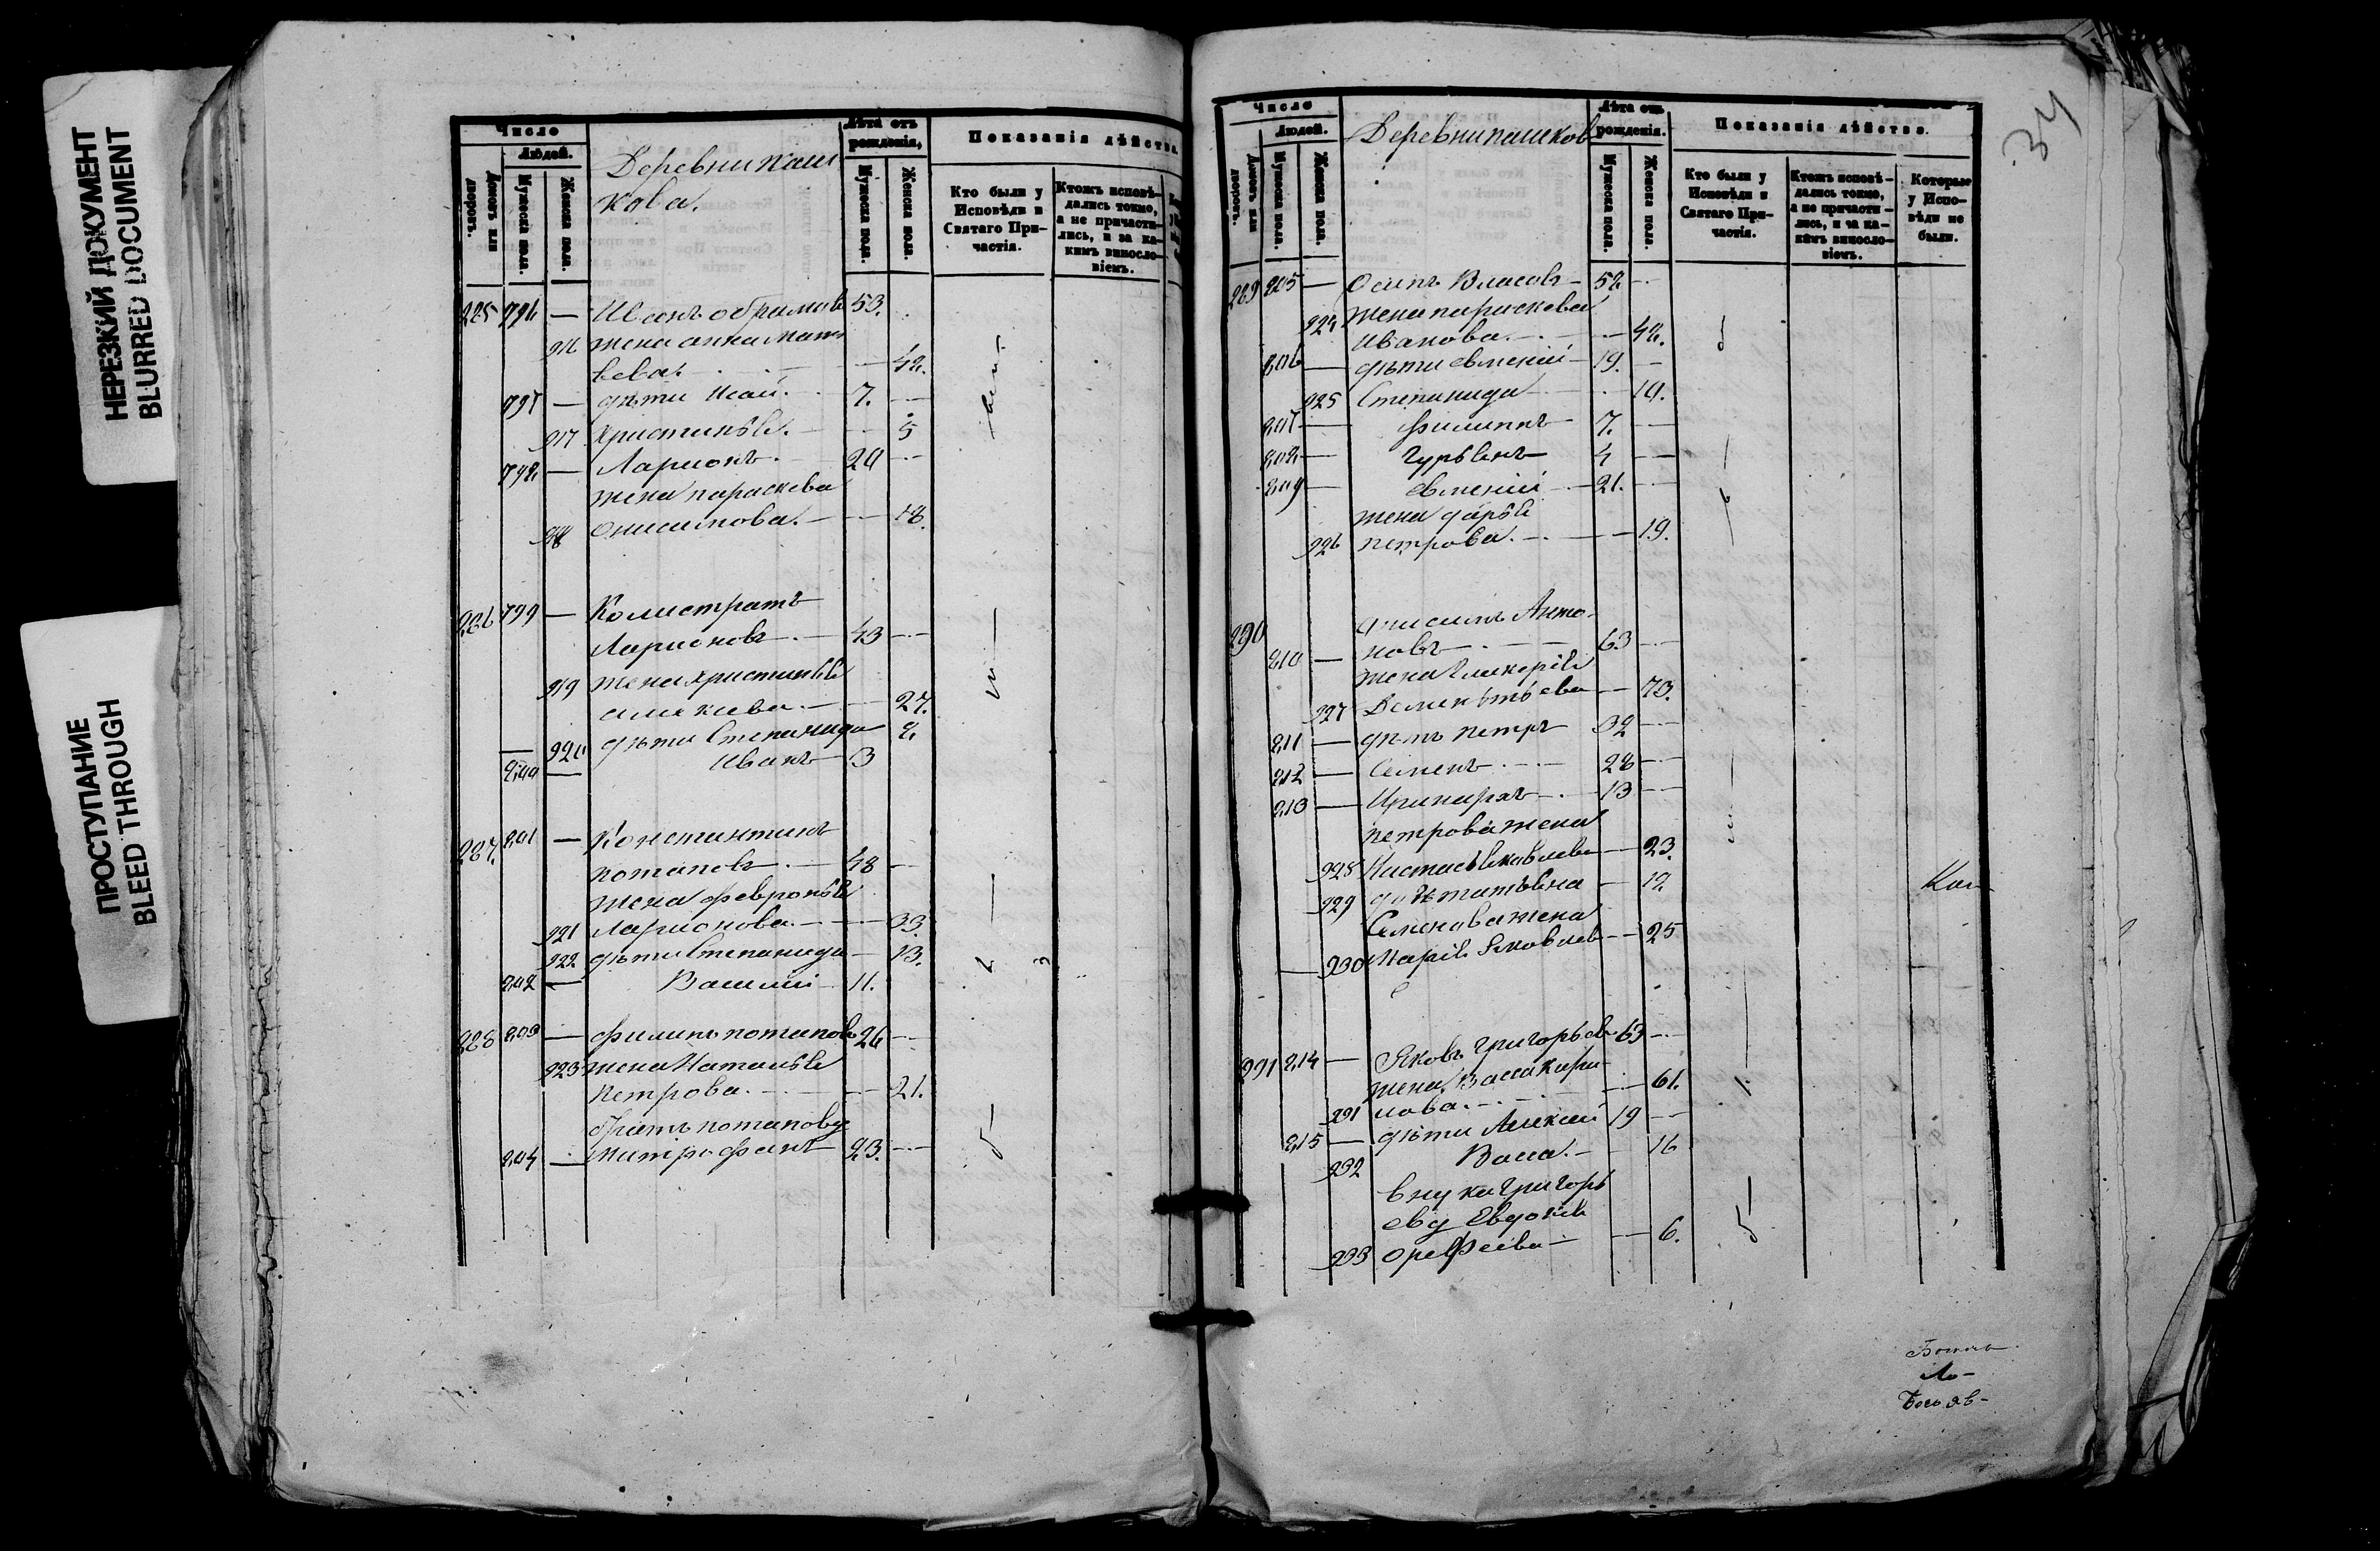 НЕРЕЗКИЙ ДОКУМЕНТ
BLURRED DOCUMENT
ПРОСТУПАНИЕ
BLEED THROUGH
Число
Людей.
Домовъ или дворовъ.
Мужеска пола.
Женска пола.
Деревни паш
кова.
Лѣта отъ рожденія,
Мужеска пола.
Женска пола.
Показанія дѣйства
Кто были у Исповѣди и Святаго Причастія.
Ктожъ исповѣдались токмо, а не причастились, и за какимъ винословіемъ.
285 796 — Иванъ обрамовъ 53.
916 жена анна мат
вева. 42.
797 — дѣти Исай. 7.
917 христинья. 5
798 — Ларионъ. 20
жена параскева
918 Онисимова. 18.
286 799 — Калистратъ
Ларионовъ. 43
919 жена христинья
27.
920 дѣти Степанида 8.
800 — Иванъ 3
287. 801 — Константинъ
потаповъ. 48
жена февронья
921 Ларионова. 33.
922 дѣти Степанида 13.
802 — Василий 11.
288 803 — филипъ потаповъ 26
923 жена Наталья
петрова. 21.
братъ потапову
804 — митрофанъ 23.
34
Число
Людей.
Домовъ или дворовъ.
Мужеска пола.
Женска пола.
Деревни пашков
Лѣта отъ рожденія.
Мужеска пола.
Женска пола.
Показанія дѣйства.
Кто были у Исповѣди и Святаго Причастія.
Ктожъ исповѣдались токмо, а не причастились, и за какимъ винословіемъ.
Которые у Исповѣди не были.
289 805 — Осипъ Власовъ 52
924 жена параскева
иванова. 42.
806 — дѣти евмений 19.
925 Степанида 10.
807 — филиппъ 7.
808 — Гурьянъ 4
809 — евмений 21.
жена дарья
926 петрова. 19.
290 онисимъ Анто
810 — новъ 63
жена Гликерия
927 73.
811 — дѣти петръ 32
812 — Семенъ 28
813 — 13
петрова жена
928 Настасья яковлева 23.
929 12.
Семенова жена
930 Мария Яковлев 25
291 814 — Яковъ григорьев 63
жена Васса кири
931 лова. 61.
815 — дѣти Алексей 19
932 Васса. 16
внука григорь
еву Евдокия
933 орефьева 6.